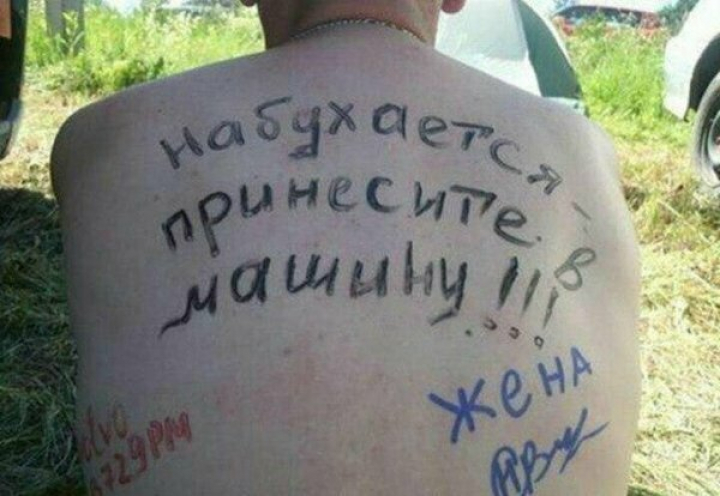 набухается -
принесите в
машину!!!
жена
729РМ